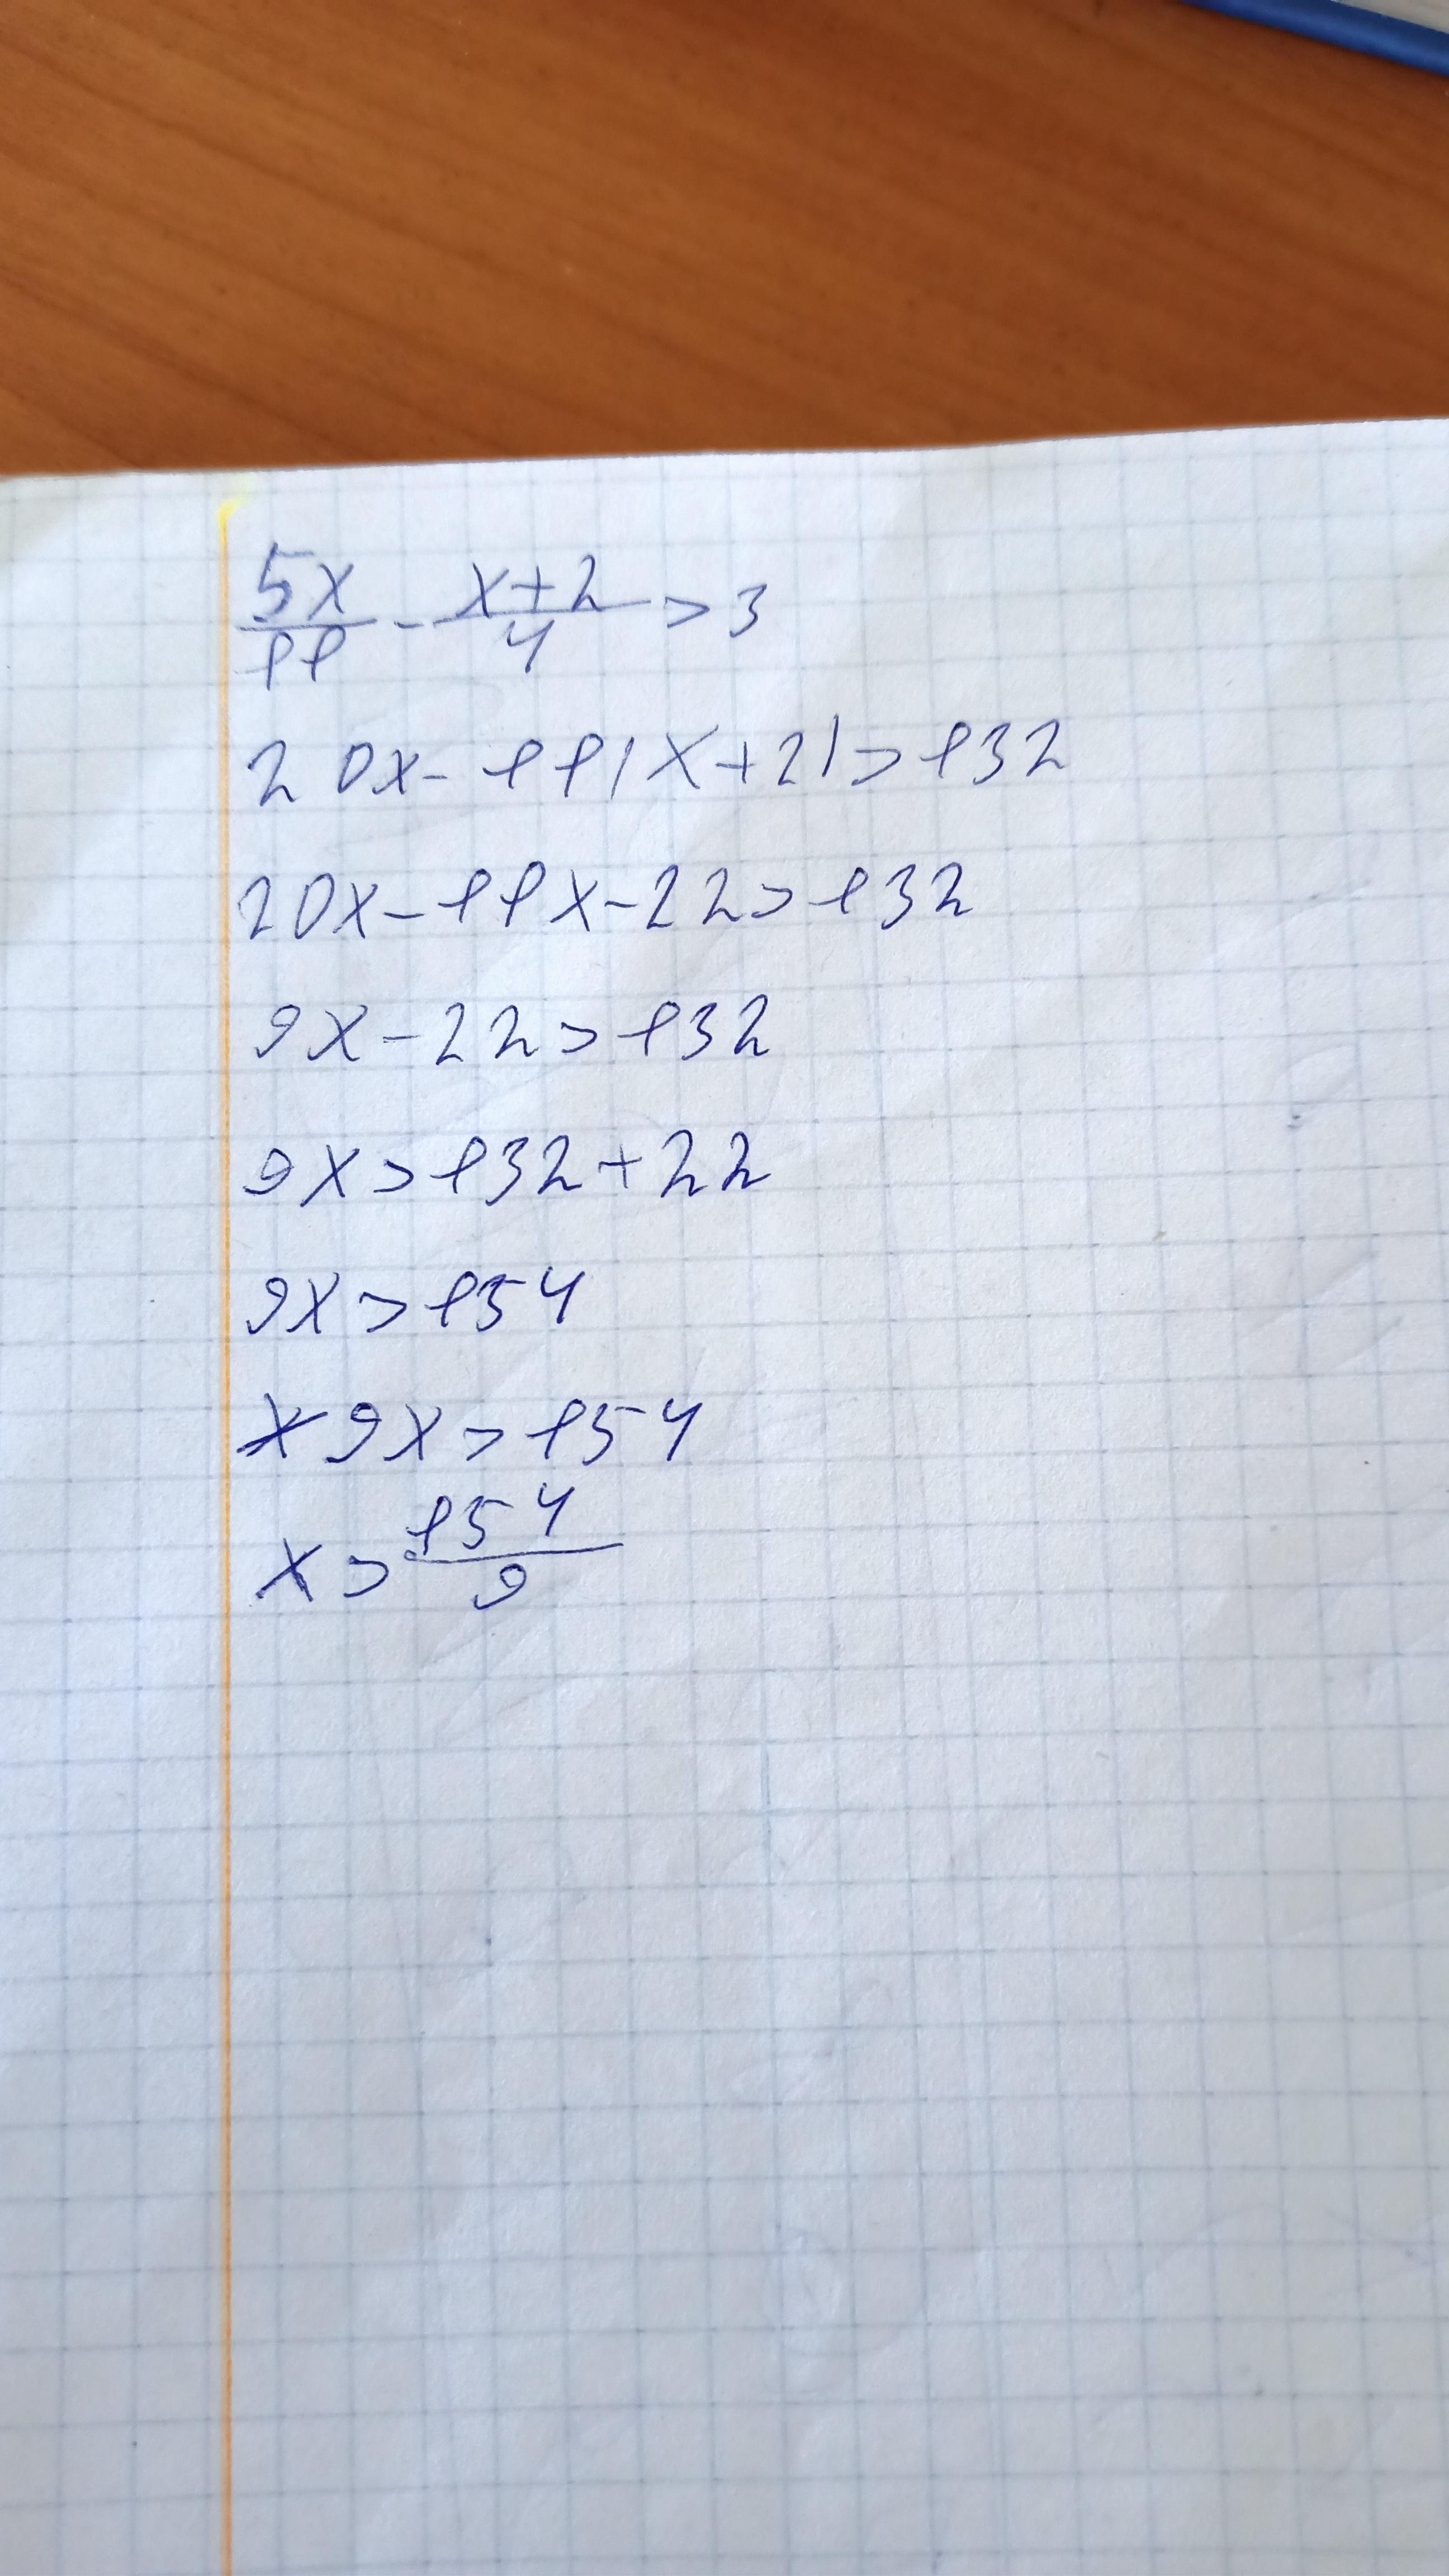 5x/11 - x+2/4 > 3
20x - 11(x+2) > 132
20x - 11x - 22 > 132
9x - 22 > 132
9x > 132 + 22
9x > 154
9x > 154
x > 154/9